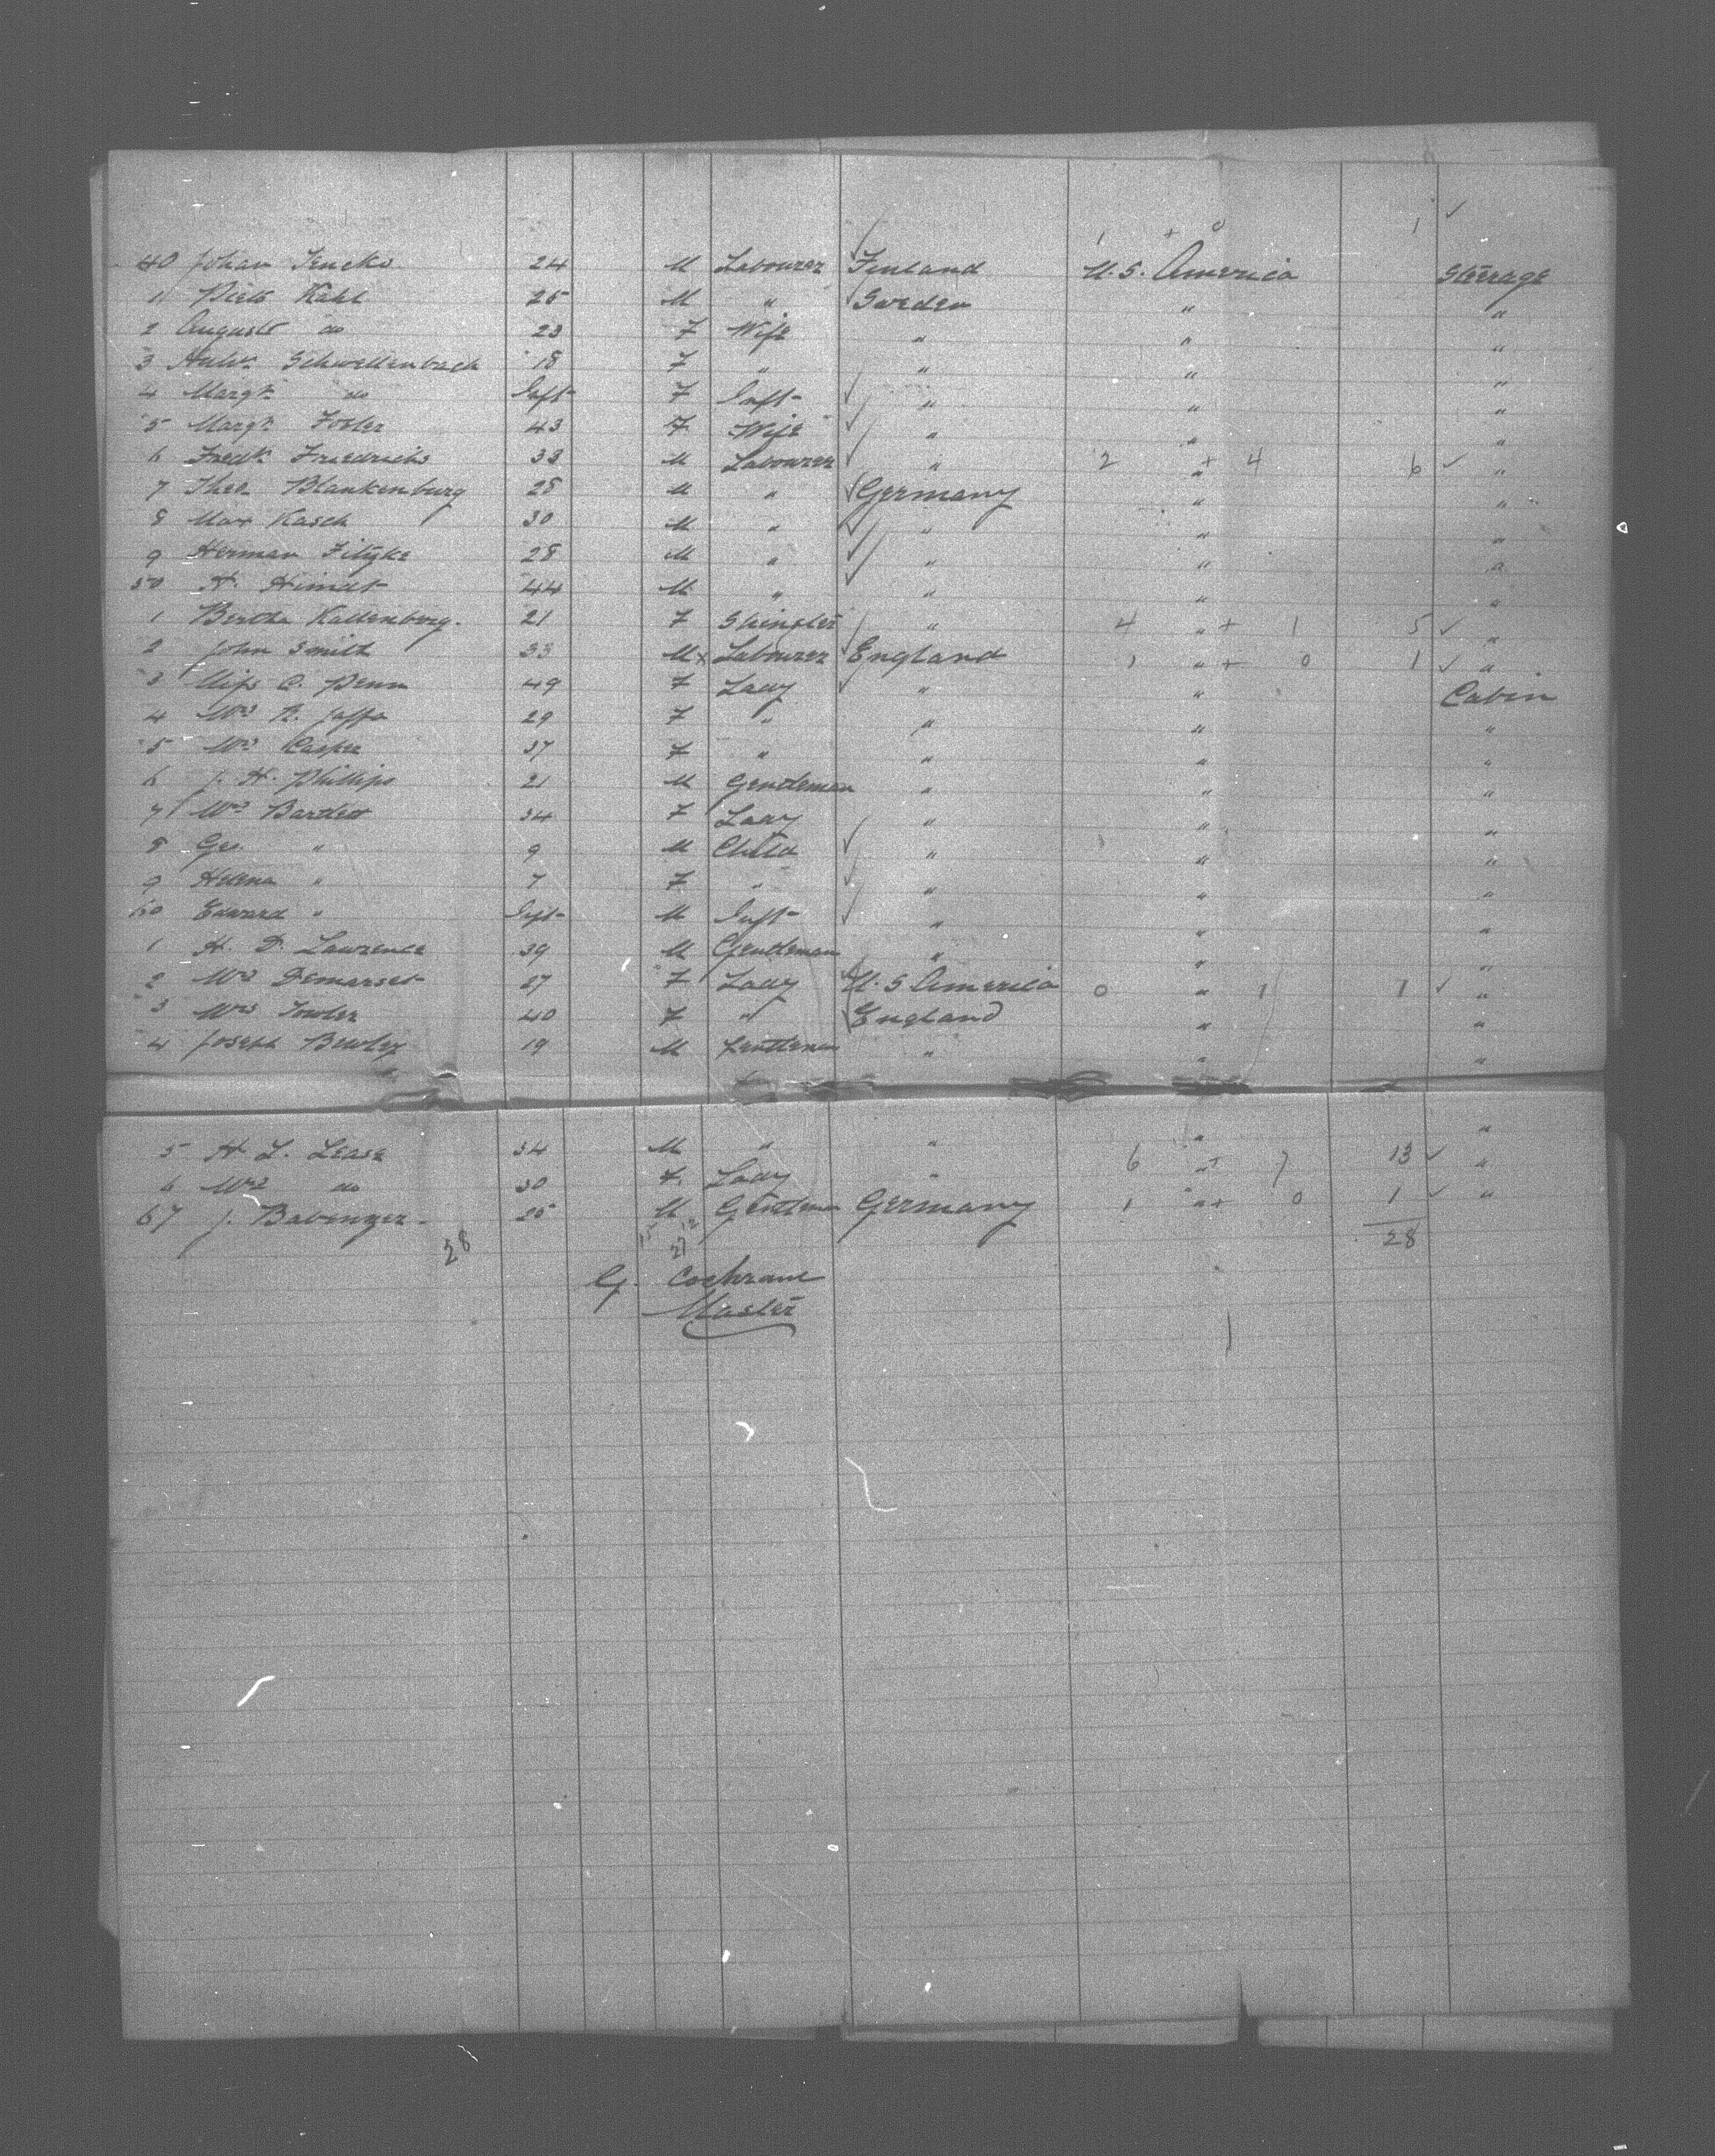 1 + 0 1 ✓
40 Johan 24 M Labourer Finland U.S. America Steerage
1 Kahl 25 M " Sweden " "
2 August do 23 F Wife " " "
3 Schwellenbach 18 F " " " "
4 Margt do Inft F Inft " " "
5 Margt Foster 43 F Wife " " "
6 Fredk Friedrichs 33 M Labourer " 2 " + 4 6 ✓ "
7 Theo Blankenburg 28 M " Germany " "
8 Max Kasch 30 M " " " "
9 Herman 28 M " " " "
50 H. 44 M " " " "
1 Bertha Kallenberg 21 F " 4 " + 1 5 ✓ "
2 John Smith 33 M x Labourer England 1 " + 0 1 ✓ "
3 Miss C. Penn 49 F Lady " " Cabin
4 Mrs R. Jaffa 29 F " " " "
5 Mrs Casper 37 F " " " "
6 J. H. Phillips 21 M Gentleman " " "
7 Mrs Bartlett 34 F Lady " " "
8 Geo. " 9 M Child " " "
9 Helena " 7 F " " " "
60 Edward " Inft M Inft " " "
1 H. D. Lawrence 39 M Gentleman " " "
2 Mrs Demarset 27 F Lady U. S America 0 " 1 1 ✓ "
3 Mrs Fowler 40 F " England " "
4 Joseph Bewley 19 M Gentleman " " "
5 H L. Lease 34 M " " " "
6 Mrs do 30 F. Lady " 6 " + 7 13 ✓ "
67 J. Babenzer 25 M Gentleman Germany 1 " + 0 1 ✓ "
28 15 12 28
27
G. Cochrane
Master